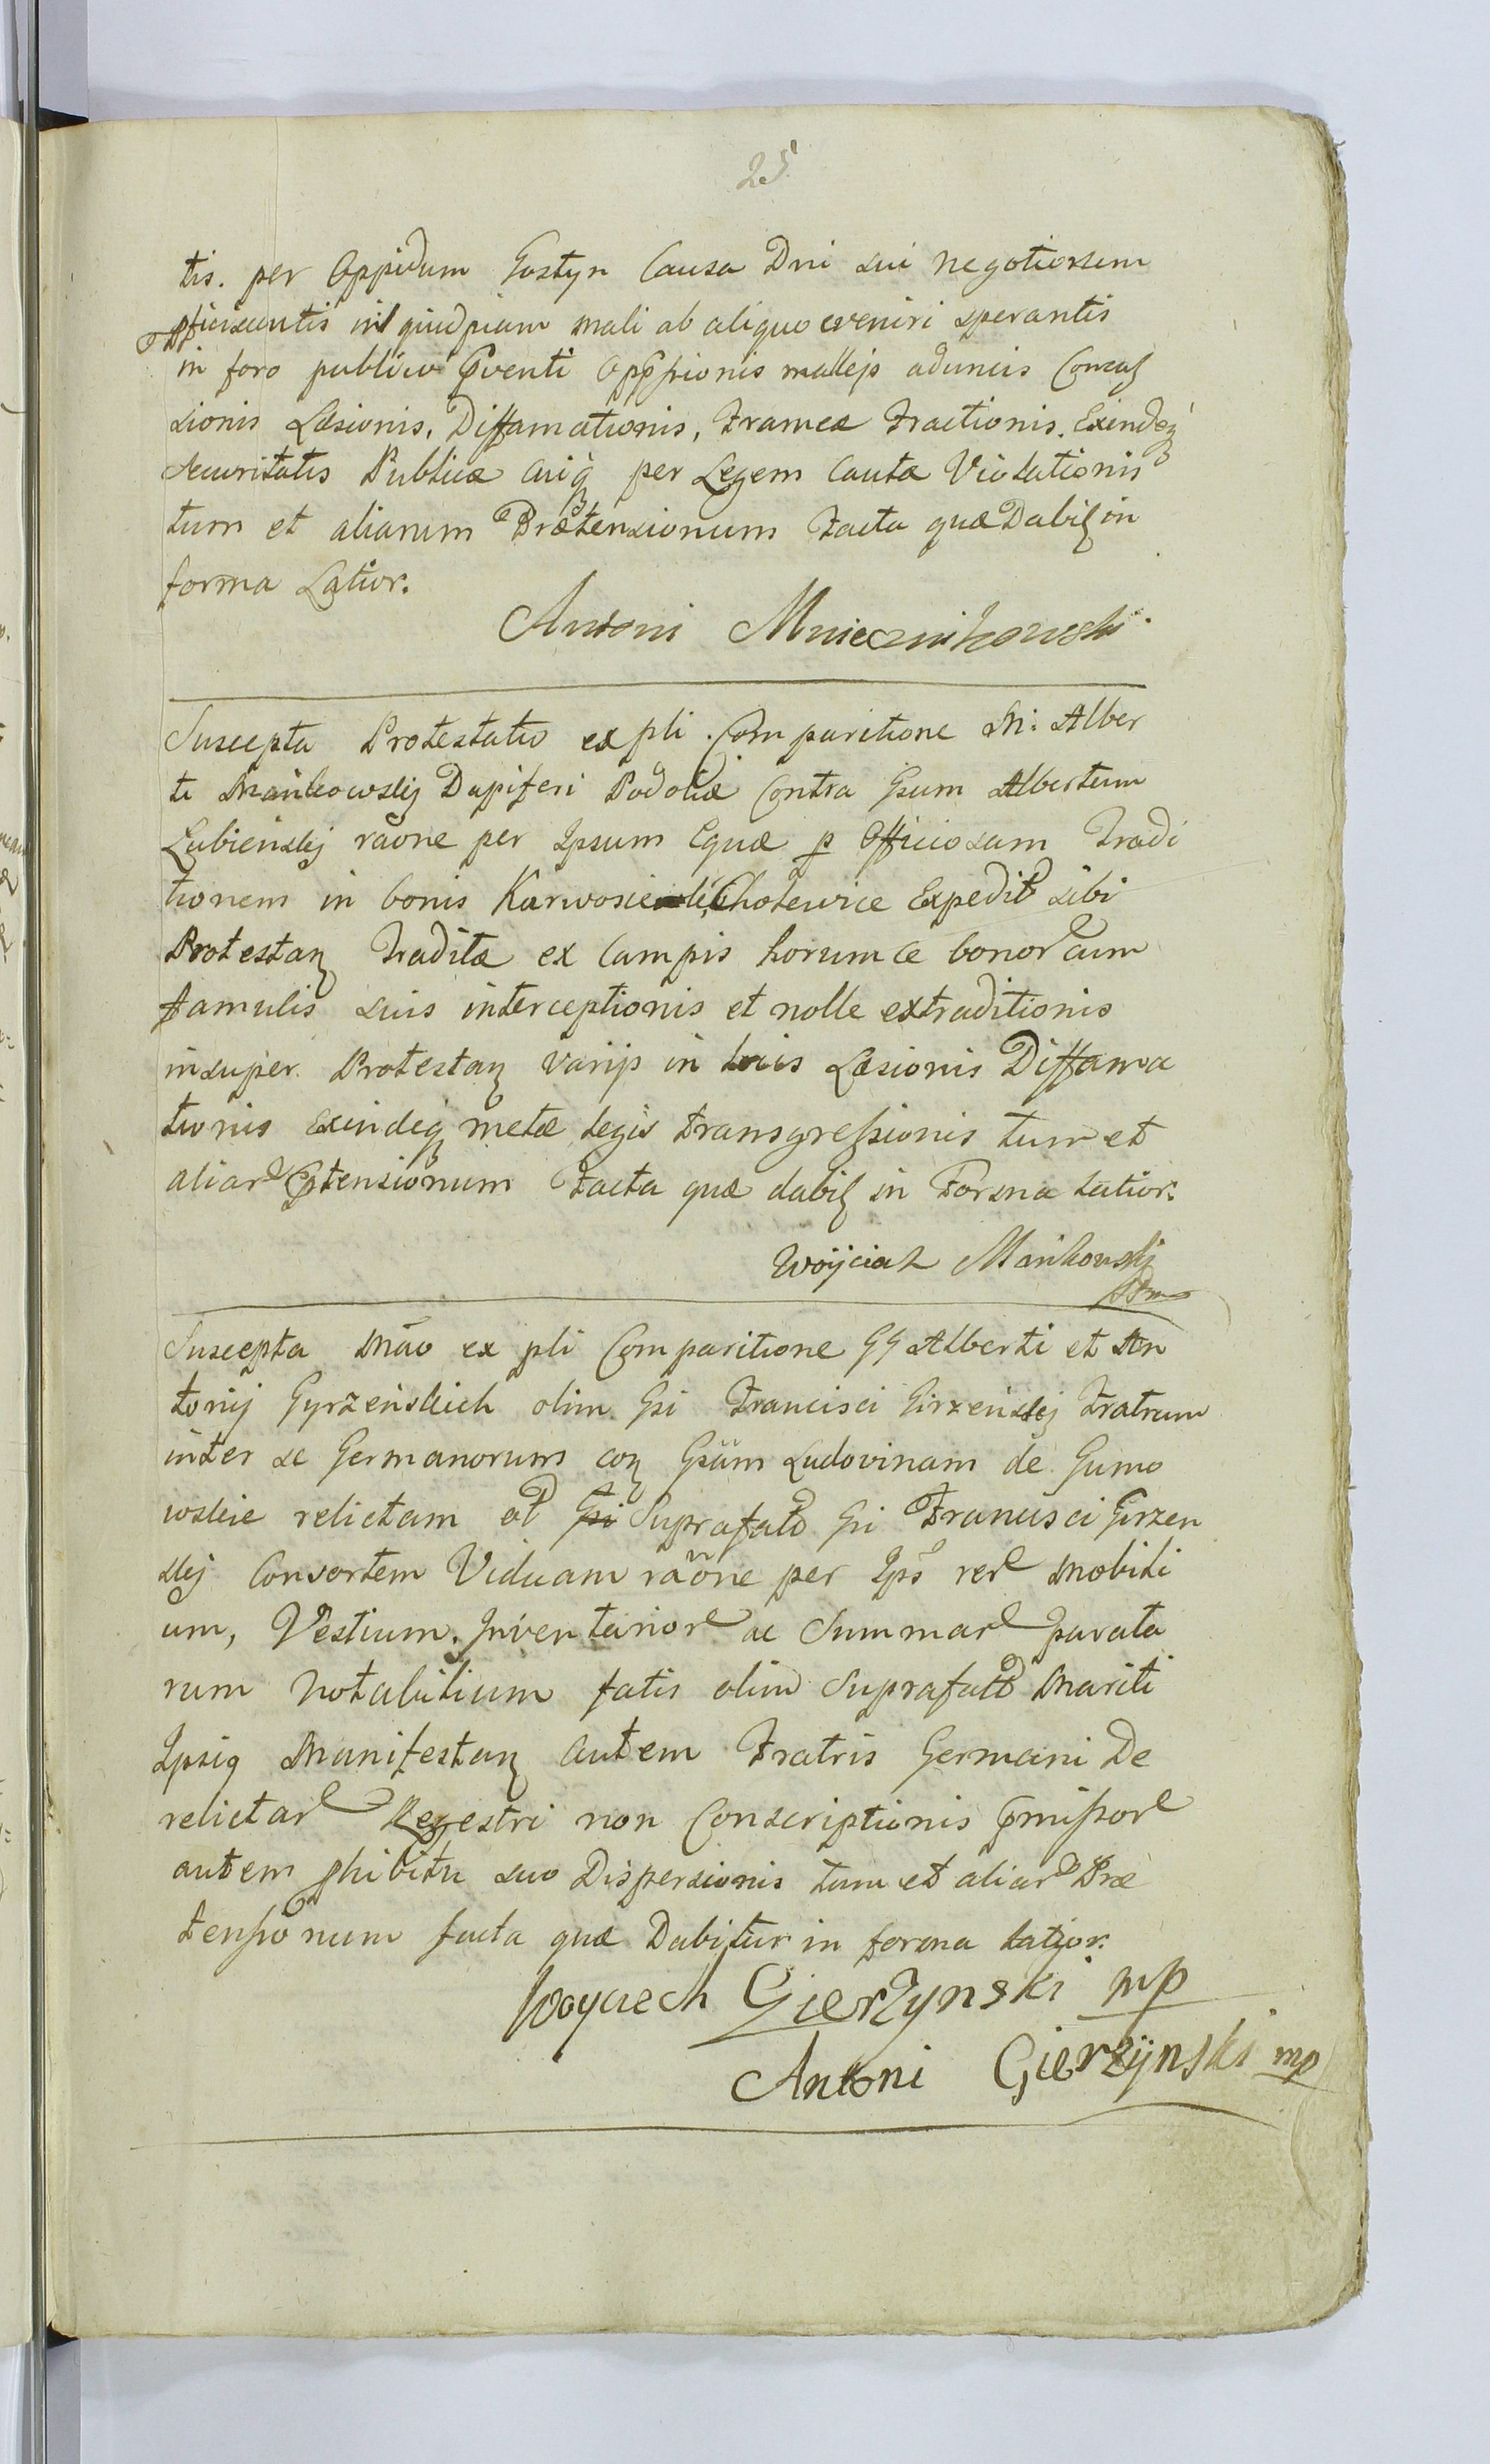 25
tis. per Oppidum Gostyn Causa Dni sui negotiorum
pficiscentis nil quidpiam mali ab aliquo eveniri sperantis
in foro publico pventi Oppssionis mallejs aduncis Concus
sionis Læsionis, Diffamationis, Frameæ Fractionis, Exindeq
Securitatis Publicæ cuiq per Legem Cautæ Violationis
tum et aliarum Prætensionum Facta quæ Dabit in
forma Latior:
Antoni Mniecznikowski
Suscepta Protestatio ex pli Comparitione M: Alber
ti Mańkowskij Dapiferi Podoliæ Contra Gsum Albertum
Łubienskij raone per Ipsum Equæ p Officiosam Tradi
tionem in bonis Karwosie Chotewice Expedit sibi
Protestan Traditæ ex Campis horumce bonor cum
famulis suis interceptionis et nolle extraditionis
insuper Protestan varijs in locis Læsionis Diffama
tionis Exindeq metæ legis transgressionis tum et
aliar Ptensionum Facta quæ dabit in Forma latior:
Woyciech Mańkowskj
Suscepta Mão ex pli Comparitione GG Alberti et An
tonij Gyrzeńskich olim Gsi Francisci Girzeńskij Fratrum
inter se Germanorum con Gsam Ludovinam de Gumo
wskie relictam ol Gsi Suprafat Gsi Francisci Girzen
skij Consortem Viduam raõne per Ips rer Mobili
um, Vestium, Inventarior ac Summar parata
rum Notabilium fatis olim Suprafat Mariti
Ipsiq Manifestan autem Fratris Germani De
relictar Regestri non Conscriptionis pmissor
autem phibitu suo Dispersionis tum et aliar Præ
tensionum facta quæ Dabitur in forma latior:
Woyciech Gierżynski mp
Antoni Gierżÿnski mp